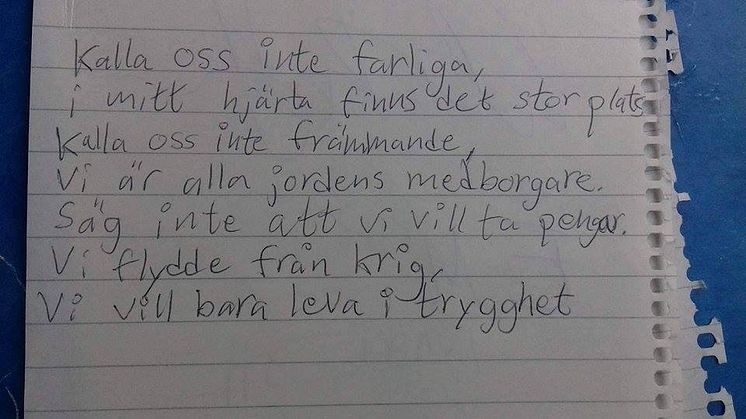 Kalla oss inte farliga,
i mitt hjärta finns det stor plats
Kalla oss inte främmande,
Vi är alla jordens medborgare.
Säg inte att vi vill ta pengar.
Vi flydde från krig,
Vi vill bara leva i trygghet